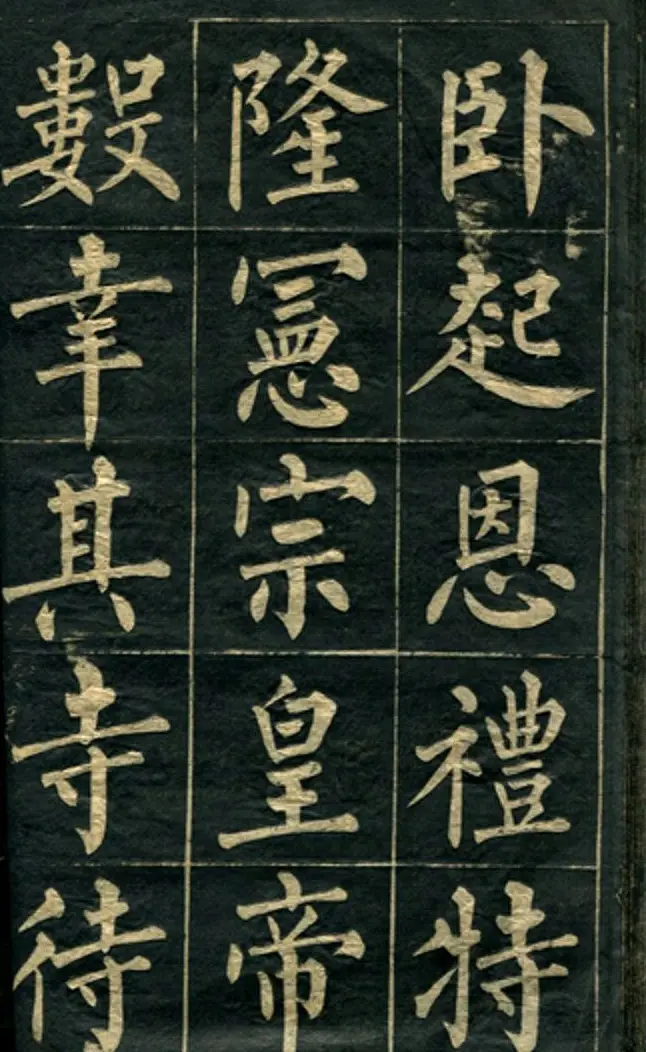 卧起恩禮特
隆憲宗皇帝
數幸其寺待